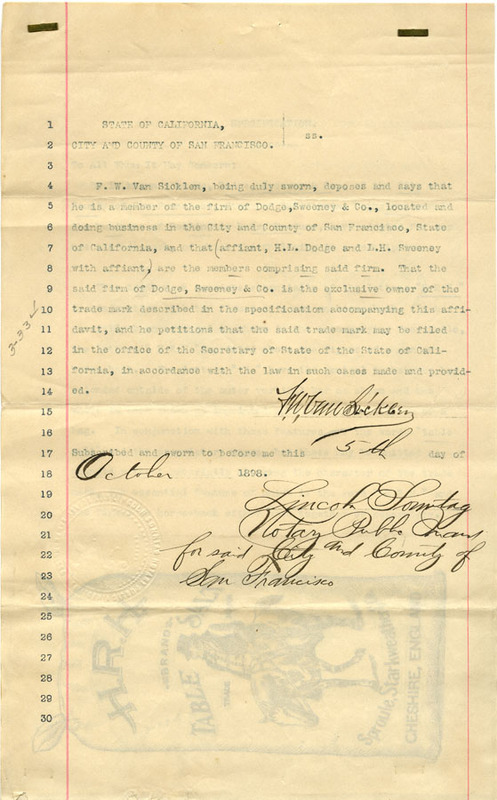 1 STATE OF CALIFORNIA,
ss.
2 CITY AND COUNTY OF SAN FRANCISCO.
3
4 F. W. Van Sicklen, being duly sworn, deposes and says that
5 he is a member of the firm of Dodge,Sweeney & Co., located and
6 doing business in the City and County of San Francisco, State
7 of California, and that (affiant, H.L. Dodge and L.H. Sweeney
8 with affiant,) are the members comprising said firm. That the
9 said firm of Dodge, Sweeney & Co. is the exclusive owner of the
10 trade mark described in the specification accompanying this affi-
11 davit, and he petitions that the said trade mark may be filed
12 in the office of the Secretary of State of the State of Cali-
13 fornia, in accordance with the law in such cases made and provid-
14 ed.
15 F. W. Van Sicklen
16 5th
17 Subscribed and sworn to before me this day of
18 October 1898.
19
20 Lincoln Sonntag
21 Notary Public in and
22 for said City and County of
23 San Francisco
24
25
26
27
28
29
30
3-33
H.R.A
BRAND
TABLE
TRADE
Sproule, Starkweather
CHESHIRE, ENGLAND